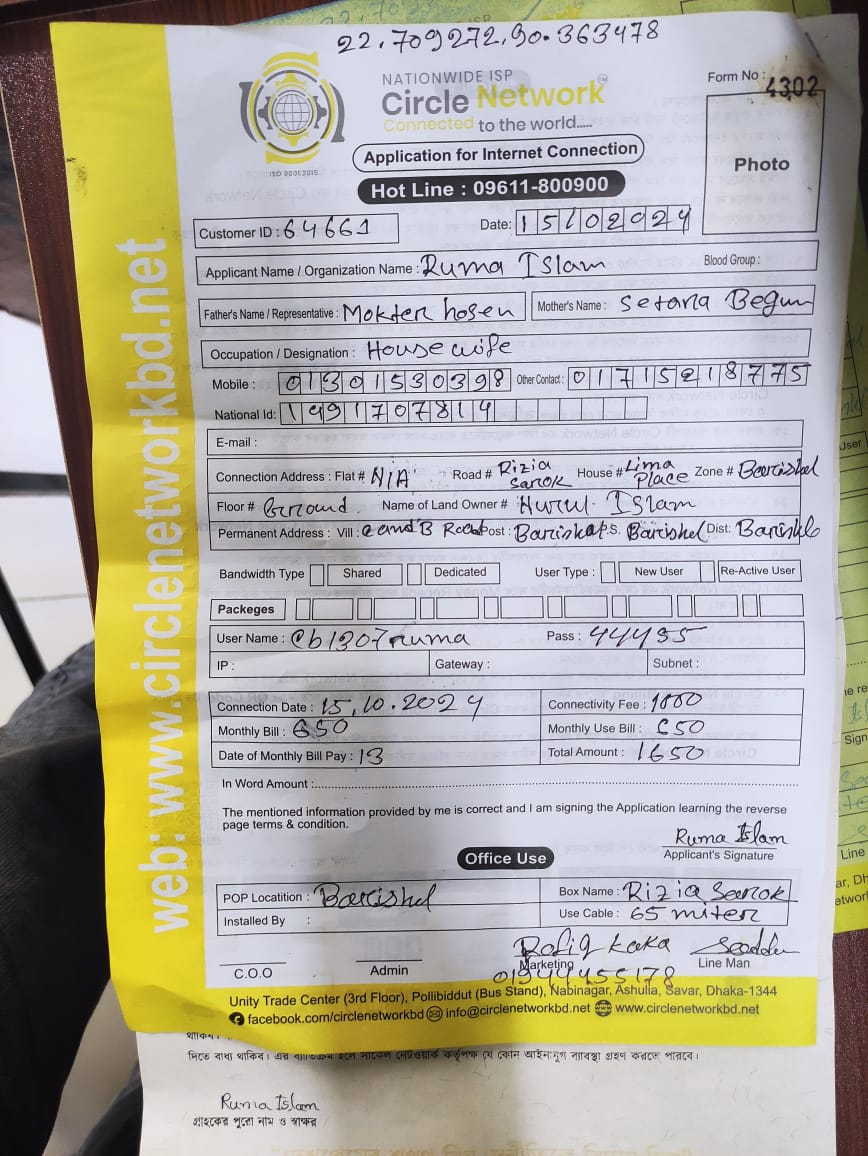 22.709272,90.363478
NATIONWIDE ISP
Circle Network
Connected to the world.....
ISO 9001:2015
Form No : 4302
Photo
Application for Internet Connection
Hot Line : 09611-800900
web: www.circlenetworkbd.net
Customer ID : 64661 Date: 15/02024
Applicant Name / Organization Name : Ruma Islam Blood Group :
Father's Name / Representative : Mokter hosen Mother's Name : Setara Begum
Occupation / Designation : House wife
Mobile : 01301530398 Other Contact : 01715218775
National Id: 1491707814
E-mail :
Connection Address : Flat # N/A Road # Rizia Sarok House # Lima Place Zone # Barishal
Floor # Ground. Name of Land Owner # Nurul Islam
Permanent Address : Vill : C and B Road Post : Barishal P.S. Barishal Dist: Barishal
Bandwidth Type Shared Dedicated User Type : New User Re-Active User
Packeges
User Name : @b1307ruma Pass : 44455
IP : Gateway : Subnet :
Connection Date : 15.10.2024 Connectivity Fee : 1000
Monthly Bill : 650 Monthly Use Bill : 650
Date of Monthly Bill Pay : 13 Total Amount : 1650
In Word Amount :
The mentioned information provided by me is correct and I am signing the Application learning the reverse
page terms & condition.
Ruma Islam
Applicant's Signature
Office Use
POP Locatition : Barishal Box Name : Rizia Sarok
Installed By : Use Cable : 65 miter
Rofiq kaka
C.O.O Admin Marketing Line Man
01944455178
Unity Trade Center (3rd Floor), Pollibiddut (Bus Stand), Nabinagar, Ashulia, Savar, Dhaka-1344
facebook.com/circlenetworkbd info@circlenetworkbd.net www.circlenetworkbd.net
থাকিব।
দিতে বাধ্য থাকিব। এর ব্যতিক্রম হলে সার্কেল নেটওয়ার্ক কর্তৃপক্ষ যে কোন আইনানুগ ব্যবস্থা গ্রহণ করতে পারবে।
Ruma Islam
গ্রাহকের পুরো নাম ও স্বাক্ষর